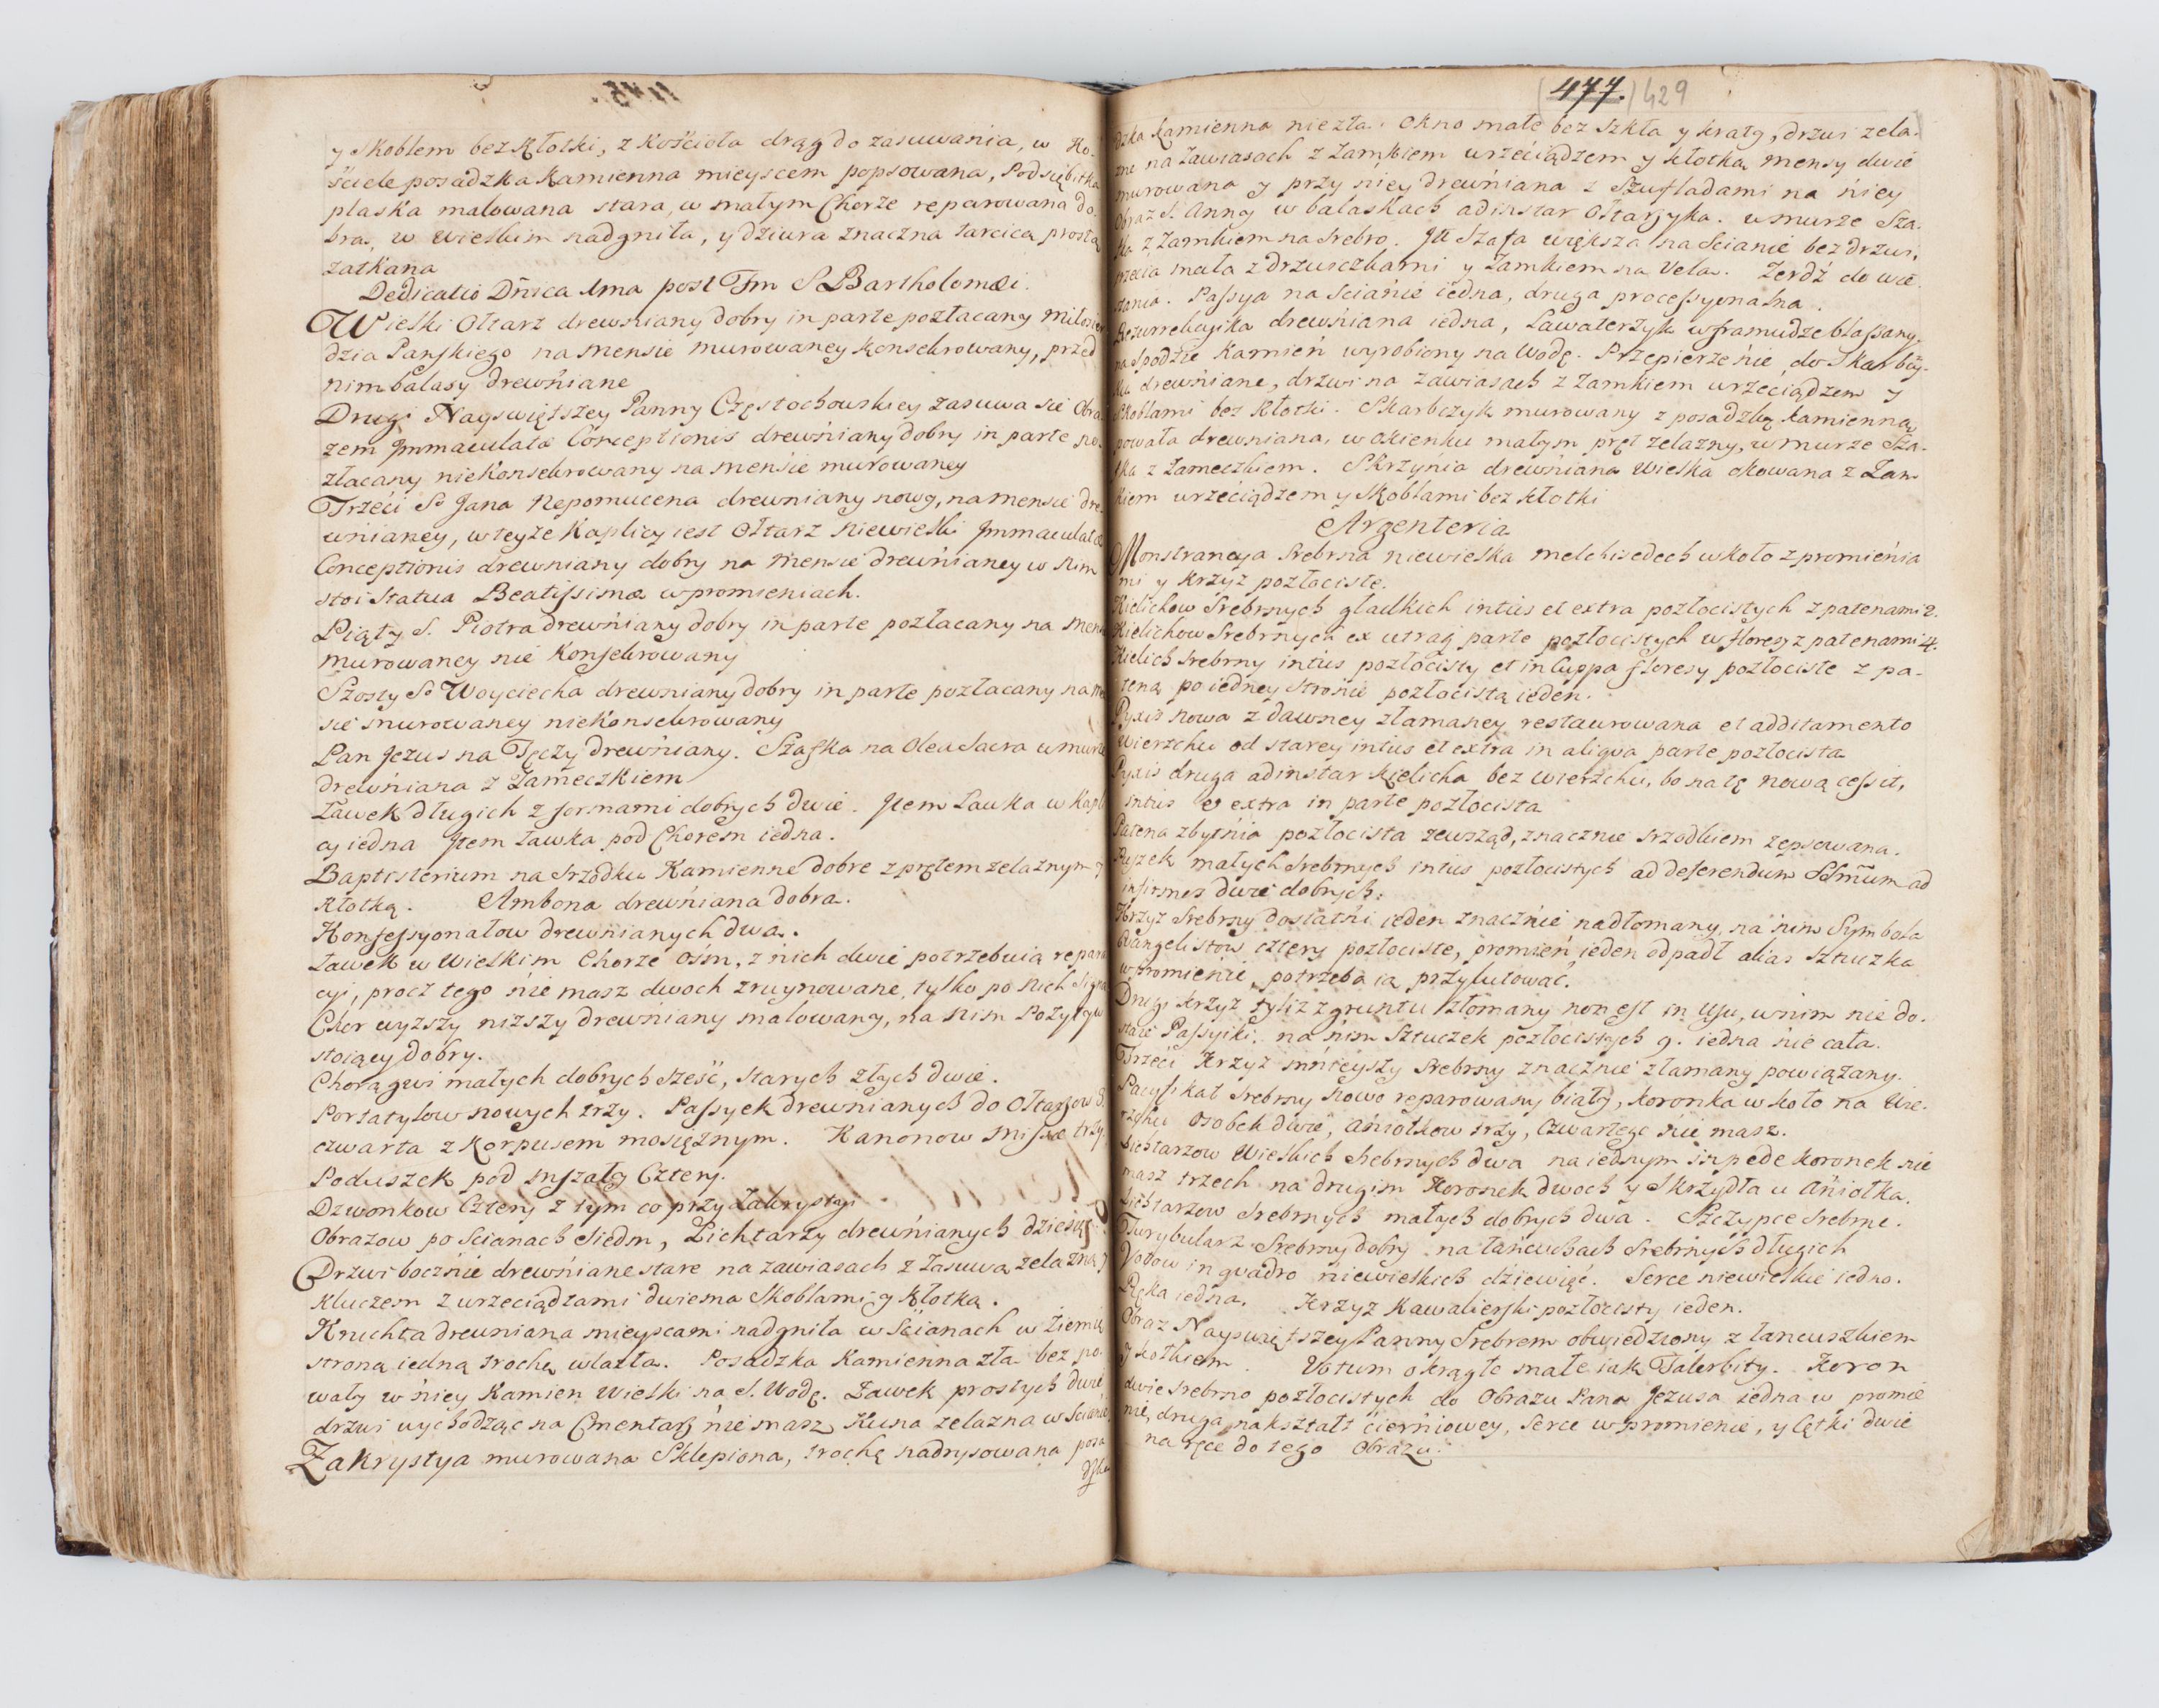 y Skoblem bez Kłotki, z Kościoła drąg do zasuwania, w Ko-
ściele posadzka Kamienna mieyscem popsowana, Podsiębitka
płaska malowana stara, w małym Chorze reparowana do-
bra, w Wielkim nadgniła, y dziura znaczna tarcicą prostą
zatkana
Dedicatio Dnica 1ma post Fm S Bartholomæi.
Wielki Ołtarz drewniany dobry in parte pozłacany Miłosier
dzia Pańskiego na Mensie murowaney konsekrowany, przed
nim balasy drewniane
Drugi Nayswiętszey Panny Częstochowskiey zasuwa się Obra
zem Immaculatæ Conceptionis drewniany dobry in parte po-
złacany niekonsekrowany na Mensie murowaney
Trzeci So Jana Nepomucena drewniany nowy, na mensie dre-
wnianey, w teyże Kaplicy iest Ołtarz niewielki Immaculatæ
Conceptionis drewniany dobry na Mensie drewnianey w nim
stoi Statua Beatissimæ w promieniach.
Piąty S. Piotra drewniany dobry in parte pozłacany na Mens
murowaney nie Konsekrowany
Szosty So Woyciecha drewniany dobry in parte pozłacany na Me
sie murowaney niekonsekrowany
Pan Jezus na Tęczy drewniany. Szafka na Olea Sacra w murze
drewniana z Zameczkiem
Ławek długich z formami dobrych dwie. Item Ławka w Kapli
cy iedna Item ławka pod Chorem iedna.
Baptisterium na srzodku Kamienne dobre z prętem zelaznym y
Kłotką. Ambona drewniana dobra.
Konfessyonałow drewnianych dwa.
Ławek w Wielkim Chorze Ośm, z nich dwie potrzebuią repara
cyi, procz tego nie masz dwoch zruynowane, tylko po nich Signa
Chor wyższy niższy drewniany malowany, na nim Pozytyw
stoiący dobry.
Chorągwi małych dobrych sześć, starych złych dwie.
Portatylow nowych trzy. Passyek drewnianych do Ołtarzow 3.
czwarta z Korpusem mosiężnym. Kanonow Missæ trzy.
Poduszek pod mszały Cztery.
Dzwonkow Cztery z tym co przy Zakrystyi
Obrazow po Scianach Siedm, Lichtarzy drewnianych dziesięć
Drzwi bocznie drewniane stare na zawiasach z Zasuwą zelazną y
Kluczem z wrzeciądzami dwiema Skoblami y Kłotką.
Kruchta drewniana mieyscami nadgniła w Scianach w Ziemię
stroną iedną trochę wlazła. Posadzka Kamienna zła bez po-
wały w niey Kamien Wielki na S. Wodę. Ławek prostych dwie,
drzwi wychodząc na Cmentarz nie masz Kuna zelazna w Scianie.
Zakrystya murowana Sklepiona, trochę nadrysowana posa
dzka
(477.) 429
dzka Kamienna niezła. Okno małe bez szkła y kraty, drzwi zela-
zne na Zawiasach z Zamkiem wrzeciądzem y kłotką mensy dwie
murowana y przy niey drewniana z Szufladami na niey
Obraz S. Anny w balaskach ad instar Ołtarzyka. w murze Sza-
fka z Zamkiem na srebro. Itt Szafa większa na Scianie bez drzwi,
trzecia mała z drzwiczkami y Zamkiem na Vela. Zerdź do wie
szania. Passya na Scianie iedna, druga processyonalna.
Rezurrekcyika drewniana iedna, Lawaterzyk w framudze blassany,
na spodzie Kamień wyrobiony na Wodę. Przepierzenie do Skarbczy-
ka drewniane, drzwi na zawiasach z Zamkiem wrzeciądzem y
Skoblami bez Kłotki. Skarbczyk murowany z posadzką kamienną
powała drewniana, w okienku małym pręt zelazny, w murze Sza-
fka z Zameczkiem. Skrzynia drewniana Wielka okowana z Zam
kiem wrzeciądzem y Skoblami bez kłotki
Argenteria
Monstrancya srebrna niewielka melchisedech w koło z promienia
mi y krzyż pozłociste.
Kielichow Srebrnych gładkich intus et extra pozłocistych z patenami 2.
Kielichow Srebrnych ex utraq parte pozłocistych w floresy z patenami 4.
Kielich srebrny intus pozłocisty et in Cuppa floresy pozłociste z pa-
teną po iedney stronie pozłocistą ieden.
Pyxis nowa z dawney złamaney restaurowana et additamento
Wierzchu od starey intus et extra in aliqva parte pozłocista
Pyxis druga ad instar kielicha bez wierzchu, bo na tę nową cessit,
intus et extra in parte pozłocista
Patena zbytnia pozłocista zewsząd, znacznie srzodkiem zepsowana.
Puszek małych srebrnych intus pozłocistych ad deferendum Ssmum ad
infirmos dwie dobrych.
Krzyz Srebrny dostatni ieden znacznie nadłomany, na nim Symbola
Evangelistow cztery pozłociste, promień ieden odpadł alias sztuczka
w promienie, potrzeba ią przylutować.
Drugi krzyz tysz z gruntu złomany non est in Usu, w nim nie do-
staie Passyiki, na nim Sztuczek pozłocistych 9. iedna nie cała.
Trzeci krzyz mnieyszy srebrny znacznie złamany powiązany.
Pacyfikał Srebrny nowo reparowany biały, koronka w koło na Wie-
rzchu Osobek dwie, Aniołkow trzy, czwartego nie masz.
Lichtarzow Wielkich srebrnych dwa na iednym in pede koronek nie
masz trzech na drugim Koronek dwoch y Skrzydła u Aniołka.
Lichtarzow srebrnych małych dobrych dwa. Szczypce srebrne.
Turybularz Srebrny dobry na łańcuchach Srebrnych długich
Votow in qvadro niewielkich dziewięć. Serce niewielkie iedno.
Ręka iedna. Krzyz Kawalierski pozłocisty ieden.
Obraz Nayswiętszey Panny Srebrem obwiedziony z łancuszkiem
y kołkiem. Votum okrągłe małe iak Talerbity. Koron
dwie srebrno pozłocistych do Obrazu Pana Jezusa iedna w promie
nie, druga nakształt cierniowey, Serce w promienie, y Cętki dwie
na ręce do tego Obrazu.